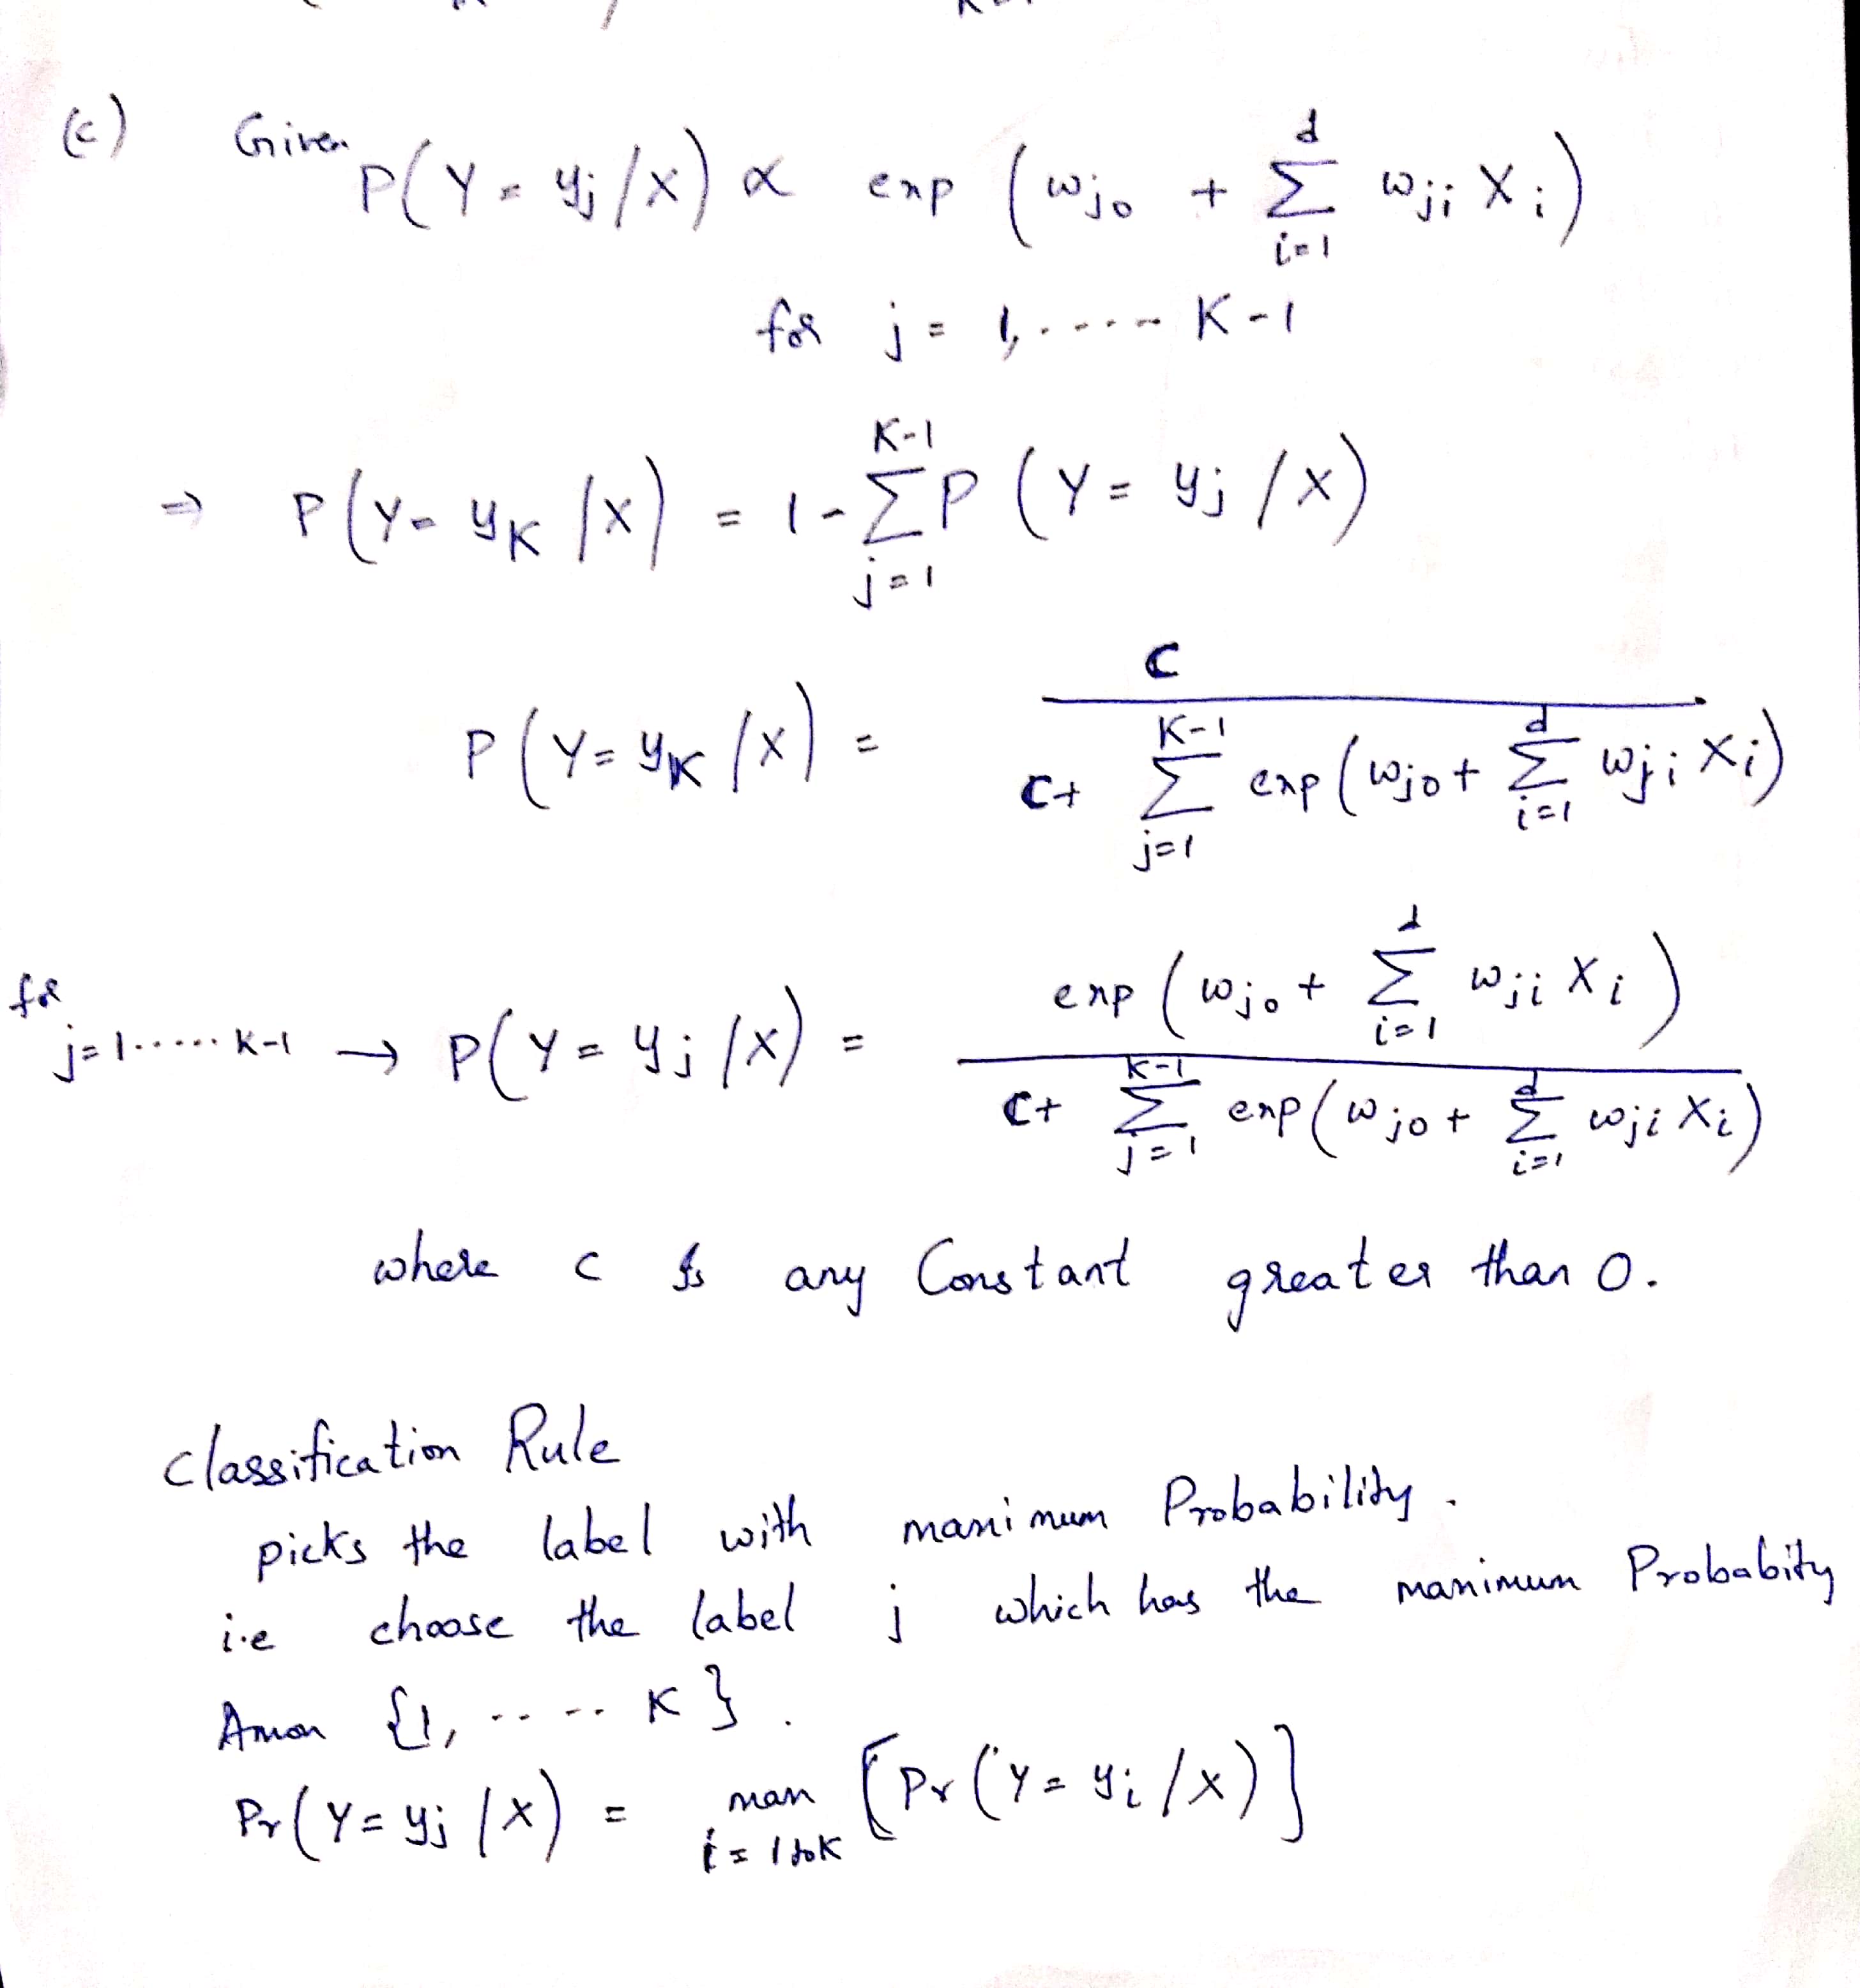 (c) Given P(Y = yj/X) ∝ exp (wjo + Σ_{i=1}^{d} wji Xi)
for j = 1, ..... K-1
⇒ P(Y = yK/X) = 1 - Σ_{j=1}^{K-1} P(Y = yj/X)
P(Y = yK/X) = C / (C + Σ_{j=1}^{K-1} exp(wjo + Σ_{i=1}^{d} wji Xi))
for j=1......K-1 → P(Y = yj/X) = exp(wjo + Σ_{i=1}^{d} wji Xi) / (C + Σ_{j=1}^{K-1} exp(wjo + Σ_{i=1}^{d} wji Xi))
where C is any Constant greater than 0.
Classification Rule
picks the label with maximum Probability.
i.e choose the label j which has the maximum Probabity
Amon {1, ..... K}.
Pr(Y = yj/X) = max_{i = 1 to K} [Pr(Y = yi/X)]